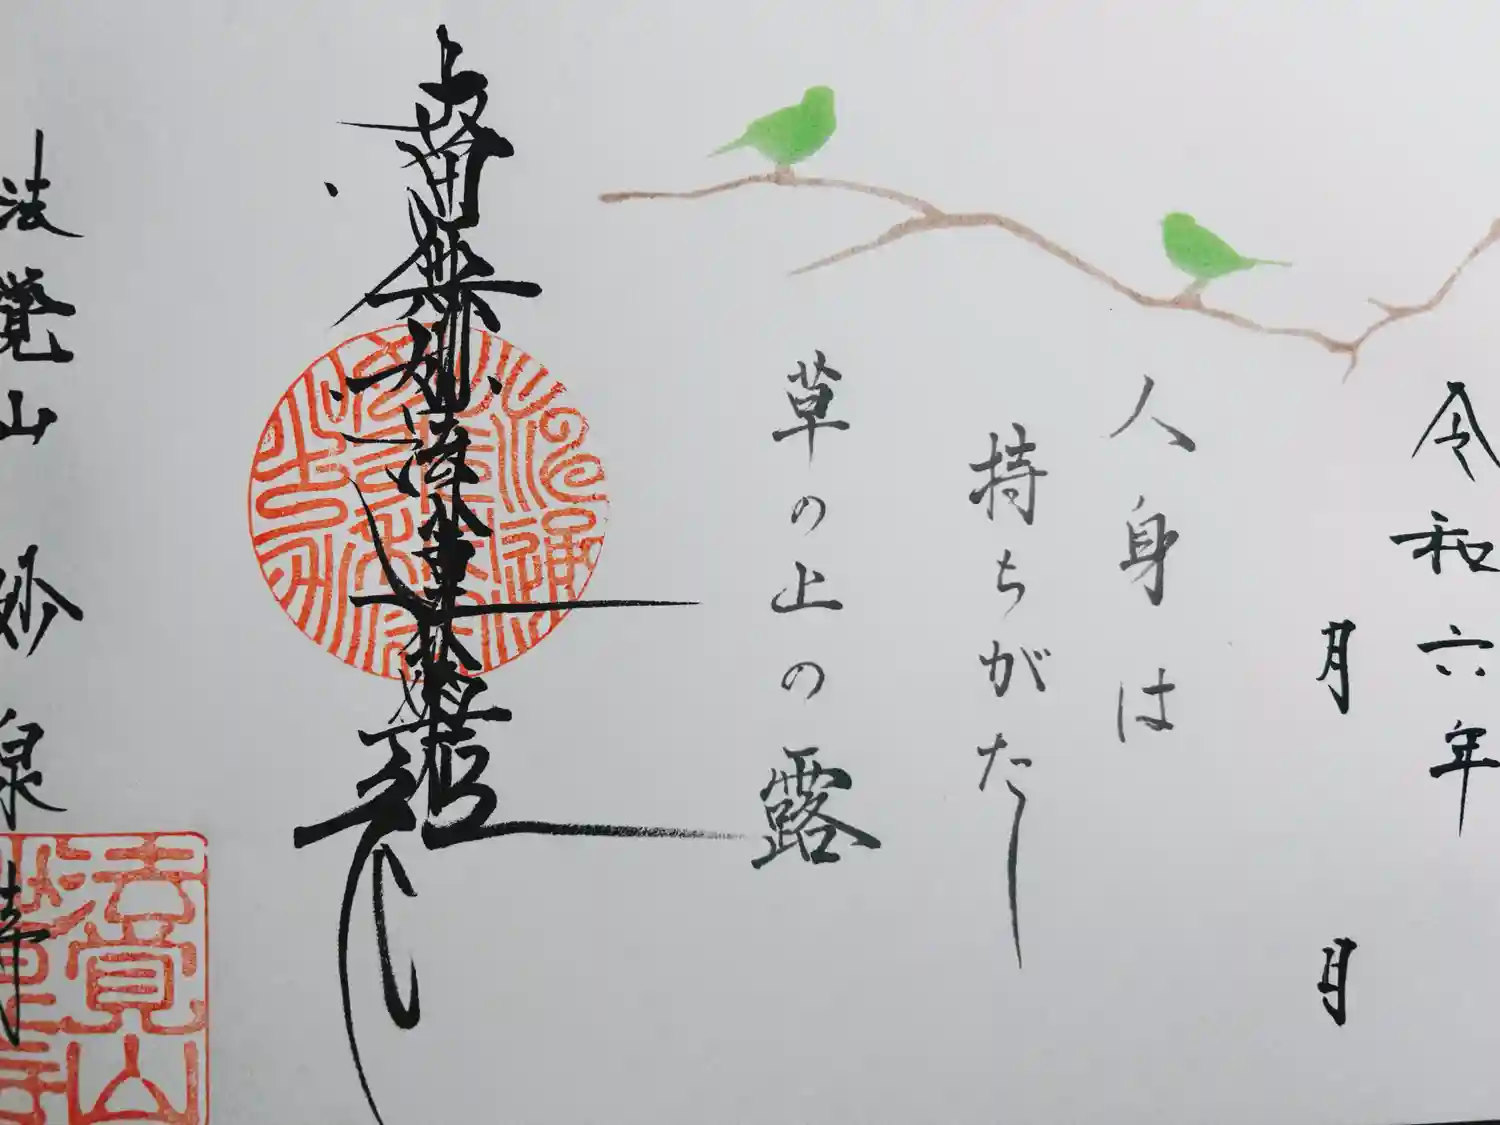 令和六年
月
日
人身は
持ちがたし
草の上の露
南無妙法蓮華経
法覚山 妙泉寺
法覺山